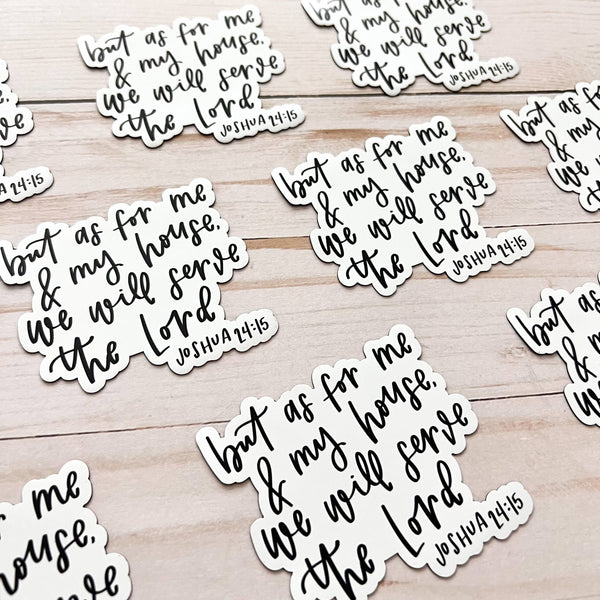 but as for me
& my house,
we will serve
the Lord
JOSHUA 24:15
& my house,
we will serve
the Lord
JOSHUA 24:15
24:15
but as for me
& my
we
but as for me
& my house,
we will serve
the Lord
JOSHUA 24:15
but as for me
& my house,
we will serve
the Lord
JOSHUA 24:15
but as
&
we
but as for me
& my house,
we will serve
the Lord
JOSHUA 24:15
me
house,
serve